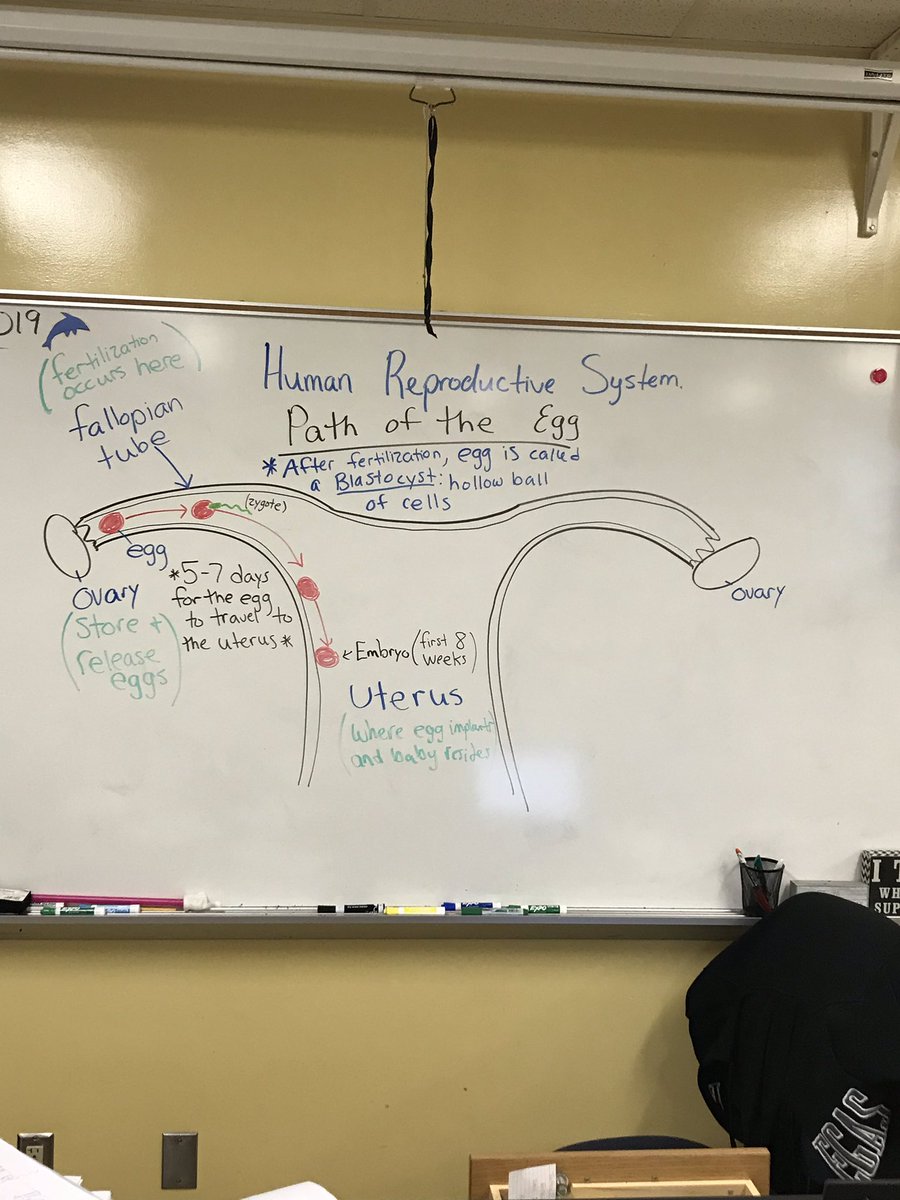 019
(fertilization
occurs here)
fallopian
tube
Human Reproductive System.
Path of the Egg
*After fertilization, egg is called
a Blastocyst: hollow ball
of cells
(zygote)
egg
ovary
(Store +
release
eggs)
*5-7 days
for the egg
to travel to
the uterus*
←Embryo (first 8
weeks)
Uterus
(where egg implants
and baby resides
ovary
EXPO
I
WH
SUP